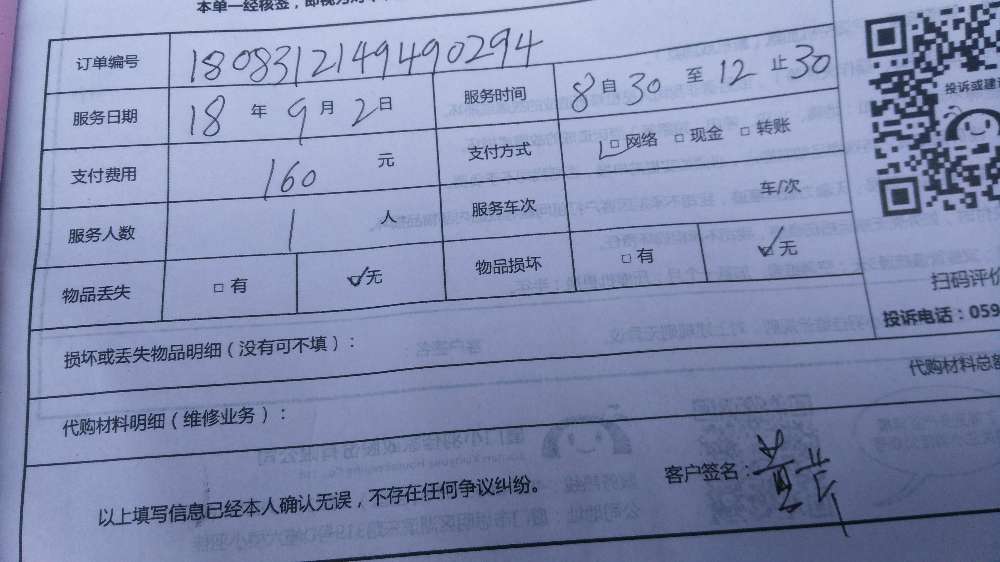 本单一经核签，即视为对
订单编号 180831214949490294
服务日期 18 年 9 月 2 日 服务时间 8 自 30 至 12 止 30
支付费用 160 元 支付方式 □ 网络 □ 现金 □ 转账
服务人数 1 人 服务车次 车/次
物品丢失 □ 有 ✓无 物品损坏 □ 有 ✓无
损坏或丢失物品明细（没有可不填）：
代购材料明细（维修业务）：
以上填写信息已经本人确认无误，不存在任何争议纠纷。
客户签名：
投诉或建
扫码评价
投诉电话：059
代购材料总额